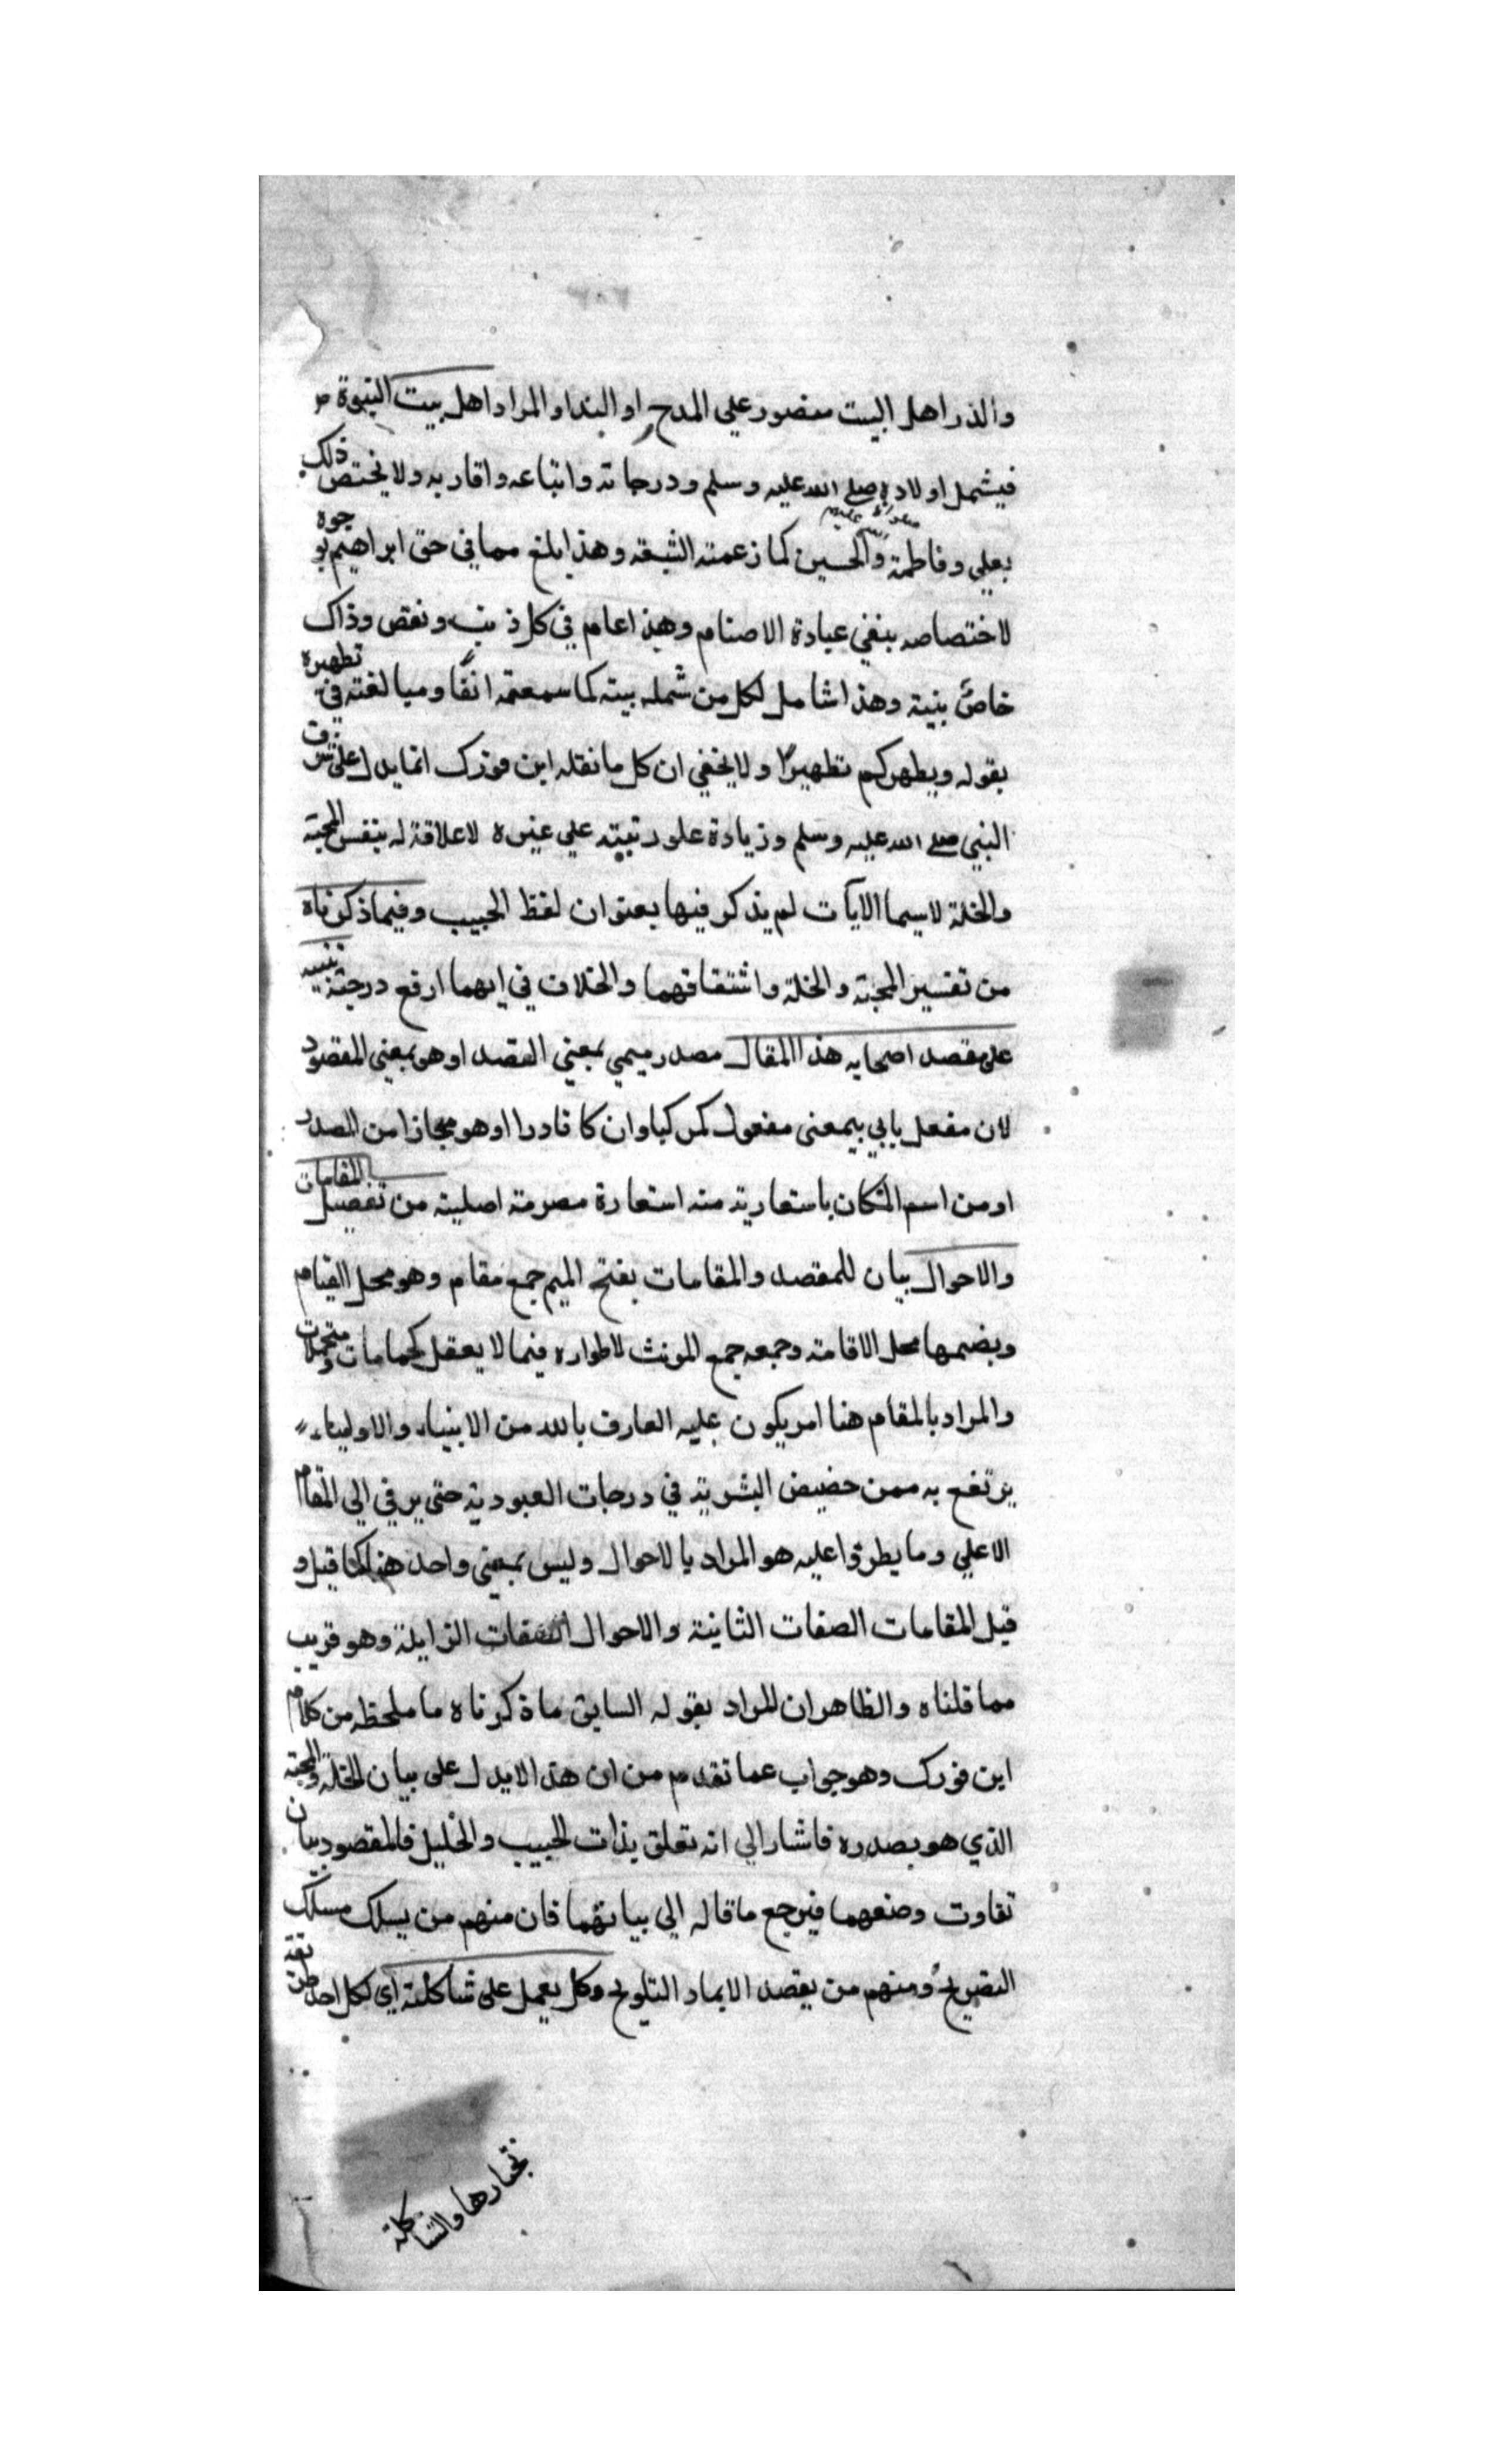 والذر اهل البيت منصور علي المدح او الندا والمراد اهل بيت النبوة
فيشمل اولاده صلى الله عليه وسلم ودرجاته واتباعه واقاربه ولا يختص ذلك
بعلي وفاطمة والحسين كما زعمته الشيعة وهذا ابلغ مما في حق ابراهيم بوجوه
لاختصاصه بنفي عبادة الاصنام وهذا عام في كل ذنب ونقص وذاك
خاص بنيه وهذا شامل لكل من شمله بيته كما سمعته انفا ومبالغته في تطهيره
بقوله ويطهركم تطهيرا ولا يخفي ان كل ما نقله ابن فورك انما يدل على شرف
النبي صلى الله عليه وسلم وزيادة علو رتبته علي غيره لا علاقة له بنفس المحبة
والخلة لاسيما الآيات لم يذكر فيها بعنوان لفظ الحبيب وفيما ذكرناه
من تفسير المحبة والخلة واشتقاقهما والخلاف في ايهما ارفع درجة تنبيه
على مقصد اصحابه هذا المقال مصدر ميمي بمعني القصد او هو بمعني المقصود
لان مفعل ياتي بمعنى مفعول كمركب وان كا نادرا او هو مجازا من المصدر
او من اسم المكان باستعاريته منه استعارة مصرحة اصلية من تفصيل المقامات
والاحوال بيان للمقصد والمقامات بفتح الميم جمع مقام وهو محل القيام
وبضمها محل الاقامة وجمعه جمع المونث لاطواره فيما لا يعقل كحمامات
والمراد بالمقام هنا امر يكون عليه العارف بالله من الانبياء والاولياء
يرتفع به ممن حضيض البشرية في درجات العبودية حتى يرقي الي المقام
الاعلي وما يطرؤا عليه هو المراد بالاحوال وليس بمعني واحد هنا كما قيل و
قيل المقامات الصفات الثانية والاحوال الصفات الزايلة وهو قريب
مما قلناه والظاهر ان المراد بقوله السابق ما ذكرناه ما ملحظه من كلام
ابن فورك وهو جواب عما تقدم من ان هذا لا يدل على بيان الخلة والمحبة
الذي هو بصدره فاشار الي انه تعلق بذات الحبيب والخليل فالمقصود بيان
تفاوت وصنعهما فيرجع ما قاله الي بيانهما فان منهم من يسلك مسلك
التصريح ومنهم من يقصد الايماد التلويح وكل يعمل على شاكلته اي لكل احد طريقة
تختارها والشاكلة